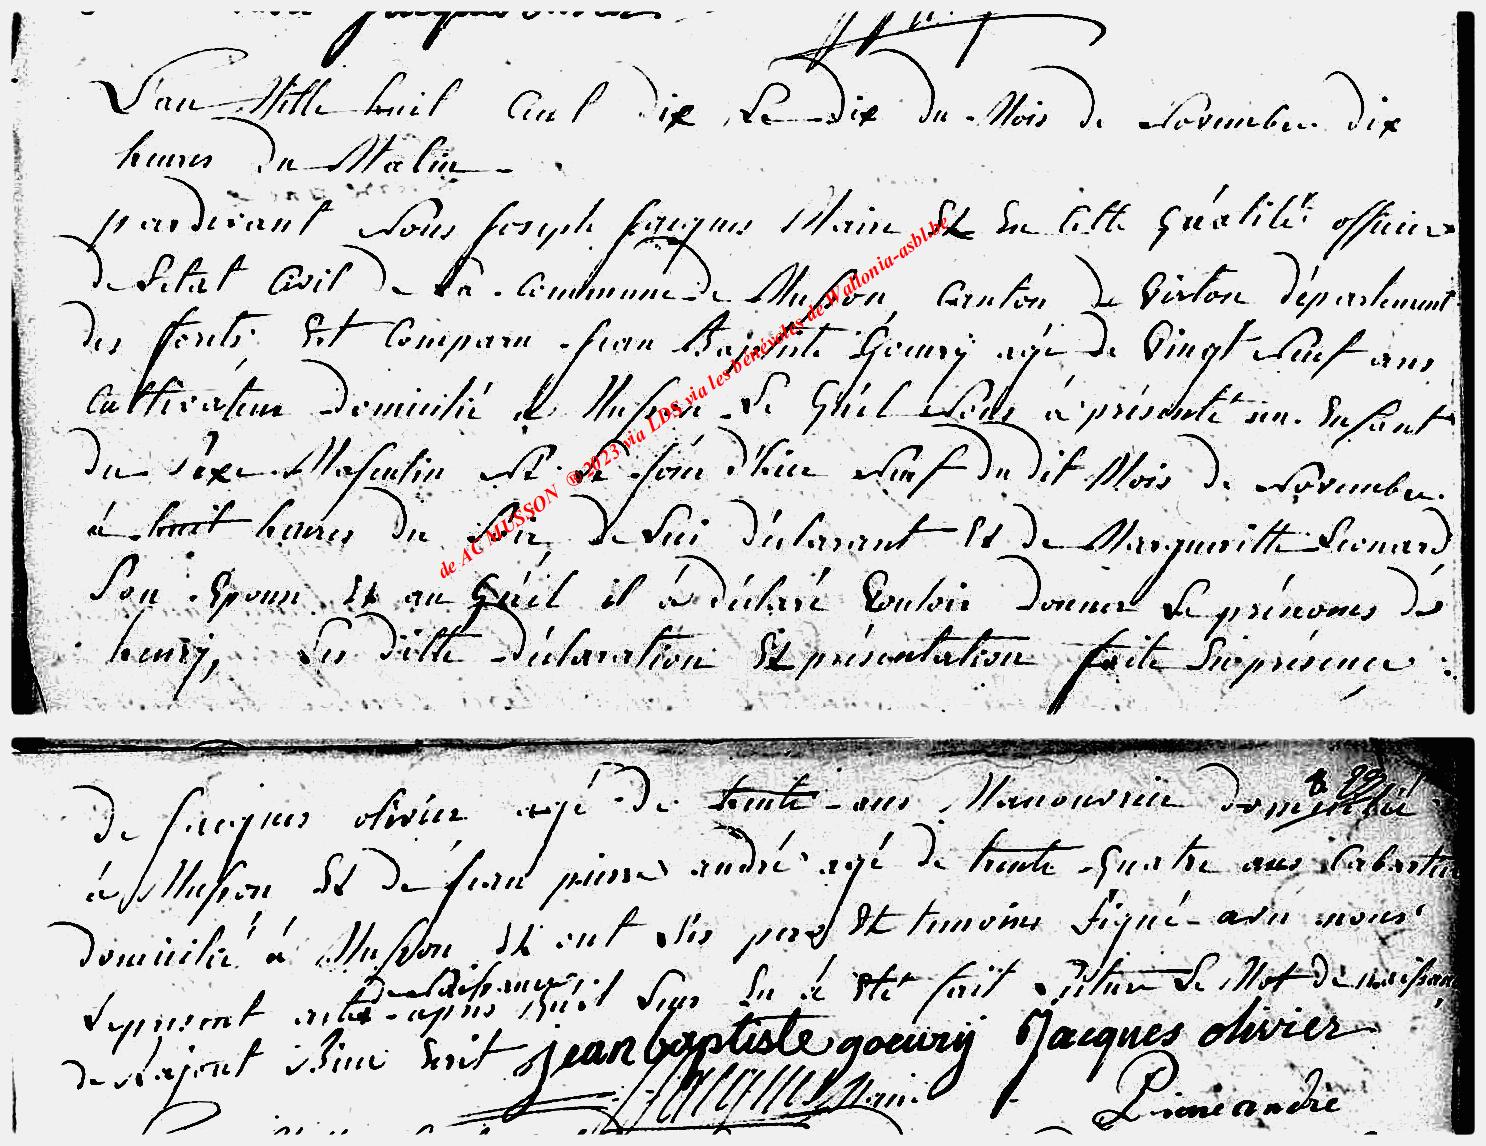 L'an Mille huit Cent dix Le dix du Mois de Novembre dix
heures du Matin
pardevant Nous Joseph Jacques Maire Et En Cette Qualité officier
de Letat Civil de La Commune de Musson Canton de Virton département
des forets Est Comparu Jean Baptiste Goeury agé de Vingt Neuf ans
Cultivateur domicilié à Musson Le Quel Nous à présenté un Enfant
du Sexe Masculin Né Le jour d'hier Neuf du dit Mois de Novembre
à huit heures du Soir de Lui déclarant Et de Margueritte Leonard
Son Epouse Et au Quel il à déclaré Vouloir donner Le prénoms de
henry, Les ditte déclaration Et présentation faite En présence
de Jacques olivier agé de trente ans Manouvrier domicilié
à Musson Et de Jean pierre andré agé de trente Quatre ans Cabartier
domicilié à Musson Et ont Les pere Et temoins Signé avec nous
de Naissance
Le present acte apres Quil Leur En à Eté fait Lecture Le Mot de naissance
de Rajout Bien Ecrit jean baptiste goeury Jacques olivier
Jacques Maire Pierre andré
de AC MUSSON ®2023 via LDS via les bénévoles de Wallonia-asbl.be